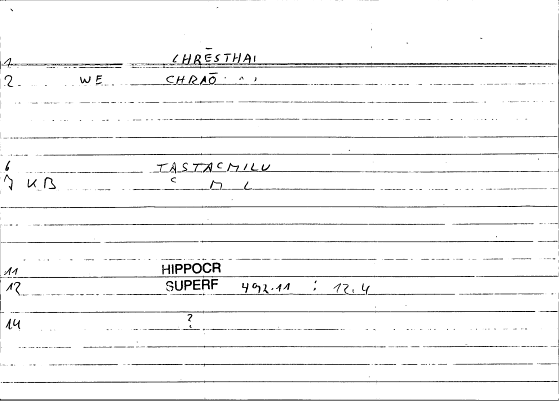 1 CHRĒSTHAI
2 WE CHRAŌ
6 TASTACMILU
7 KB C M L
11 HIPPOCR
12 SUPERF 492.11 : 12.4
14 ?